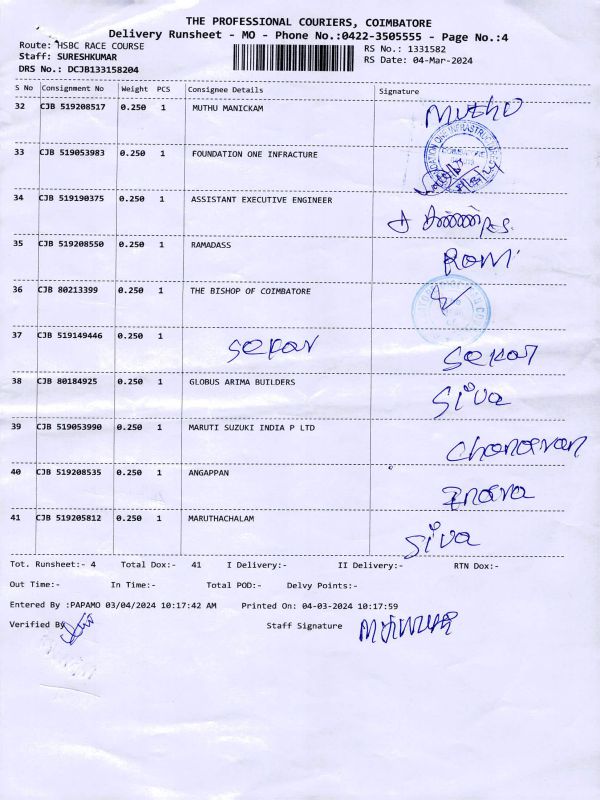 THE PROFESSIONAL COURIERS, COIMBATORE
Delivery Runsheet - MO - Phone No.:0422-3505555 - Page No.:4
Route: HSBC RACE COURSE RS No.: 1331582
Staff: SURESHKUMAR RS Date: 04-Mar-2024
DRS No.: DCJB133158204
S No Consignment No Weight PCS Consignee Details Signature
32 CJB 519208517 0.250 1 MUTHU MANICKAM Muthu
33 CJB 519053983 0.250 1 FOUNDATION ONE INFRACTURE
34 CJB 519190375 0.250 1 ASSISTANT EXECUTIVE ENGINEER
35 CJB 519208550 0.250 1 RAMADASS Rom
36 CJB 80213399 0.250 1 THE BISHOP OF COIMBATORE
37 CJB 519149446 0.250 1 Sekar Sekar
38 CJB 80184925 0.250 1 GLOBUS ARIMA BUILDERS Siva
39 CJB 519053990 0.250 1 MARUTI SUZUKI INDIA P LTD
40 CJB 519208535 0.250 1 ANGAPPAN
41 CJB 519205812 0.250 1 MARUTHACHALAM Siva
Tot. Runsheet:- 4 Total Dox:- 41 I Delivery:- II Delivery:- RTN Dox:-
Out Time:- In Time:- Total POD:- Delvy Points:-
Entered By :PAPAMO 03/04/2024 10:17:42 AM Printed On: 04-03-2024 10:17:59
Verified By Staff Signature